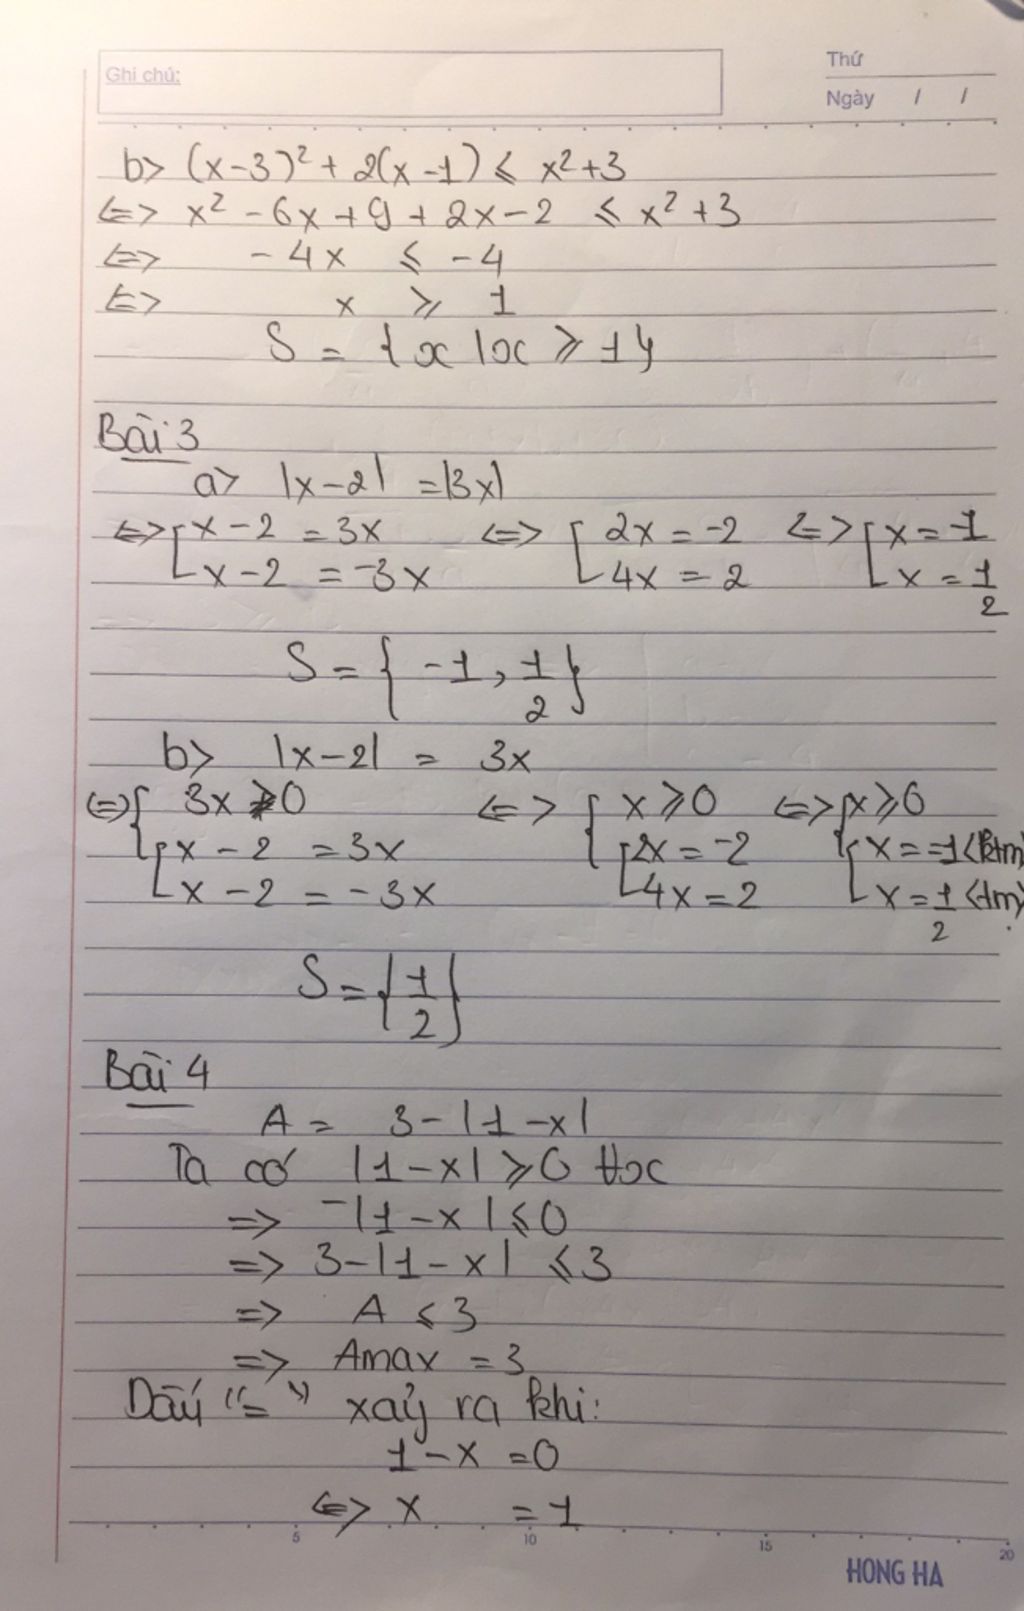 Ghi chú:
Thứ
Ngày / /
b> (x-3)² + 2(x-1) ⩽ x²+3
<=> x² - 6x + 9 + 2x - 2 ⩽ x² + 3
<=> - 4x ⩽ - 4
<=> x ⩾ 1
S = { x | x ⩾ 1 }
Bài 3
a> |x-2| = |3x|
<=> [ x - 2 = 3x <=> [ 2x = -2 <=> [ x = -1
x - 2 = -3x 4x = 2 x = 1/2
S = { -1, 1/2 }
b> |x-2| = 3x
<=> { 3x ⩾ 0 <=> { x ⩾ 0 <=> { x ⩾ 0
[ x - 2 = 3x [ 2x = -2 [ x = -1 <ktm>
x - 2 = -3x 4x = 2 x = 1/2 <tm>
S = { 1/2 }
Bài 4
A = 3 - |1 - x|
Ta có |1 - x| ⩾ 0 ∀x
=> -|1 - x| ⩽ 0
=> 3 - |1 - x| ⩽ 3
=> A ⩽ 3
=> Amax = 3
Dấu "=" xảy ra khi:
1 - x = 0
<=> x = 1
5 10 15 20
HONG HA